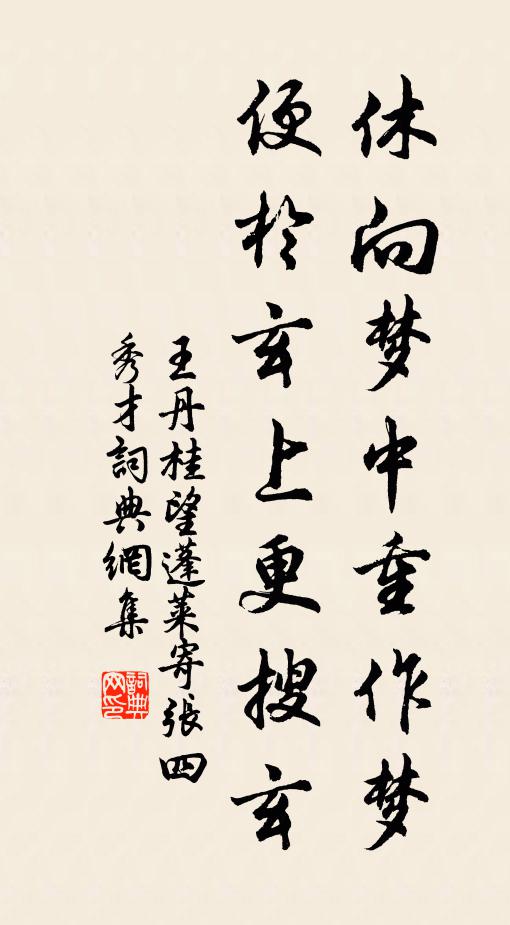 休向梦中重作梦
便於玄上更搜玄
王丹桂望蓬莱寄張四
秀才詞典網集
詞典网印